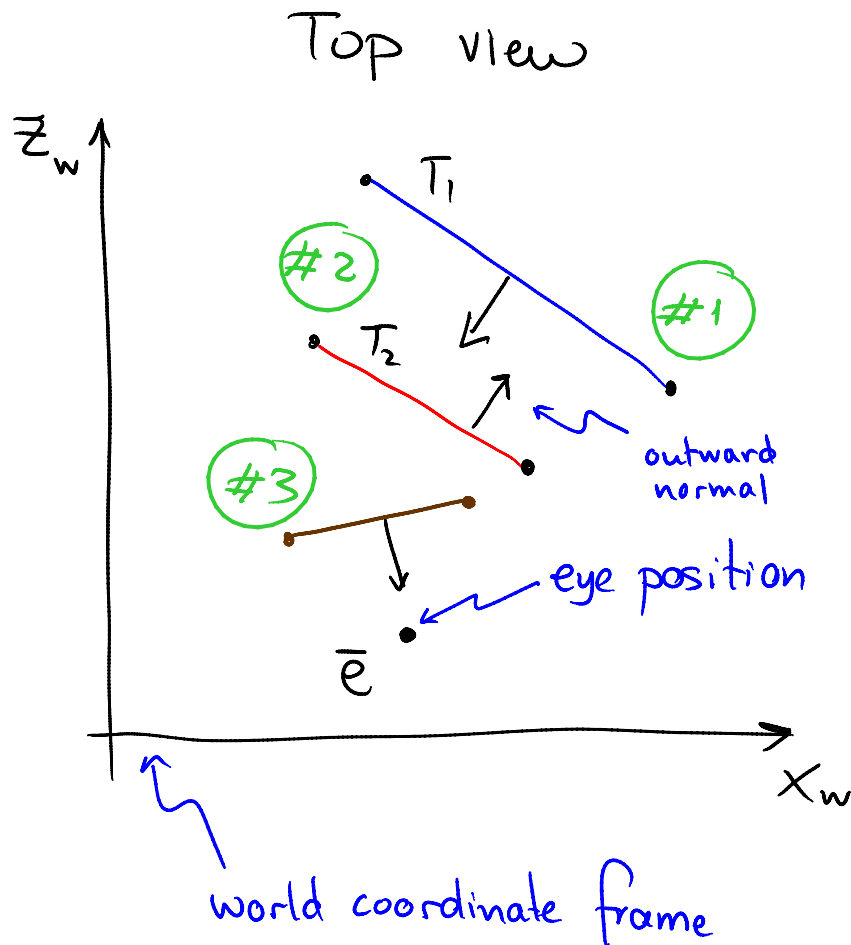 Top view
Zw
T1
#2
#1
T2
outward
normal
#3
eye position
ē
Xw
world coordinate frame